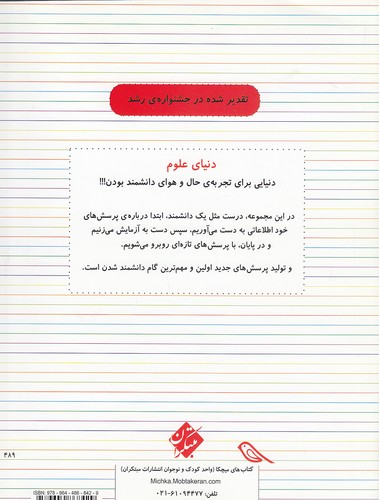 تقدیر شده در جشنواره‌ی رشد
دنیای علوم
دنیایی برای تجربه‌ی حال و هوای دانشمند بودن!!!
در این مجموعه، درست مثل یک دانشمند، ابتدا درباره‌ی پرسش‌های
خود اطلاعاتی به دست می‌آوریم، سپس دست به آزمایش می‌زنیم
و در پایان، با پرسش‌های تازه‌ای روبرو می‌شویم.
و تولید پرسش‌های جدید اولین و مهم‌ترین گام دانشمند شدن است.
مبتکران
۴۸۹
کتاب‌های میچکا (واحد کودک و نوجوان انتشارات مبتکران)
Michka.Mobtakeran.com
تلفن: ۶۱۰۹۴۴۷۷-۰۲۱
ISBN: 978 - 964 - 486 - 642 - 9